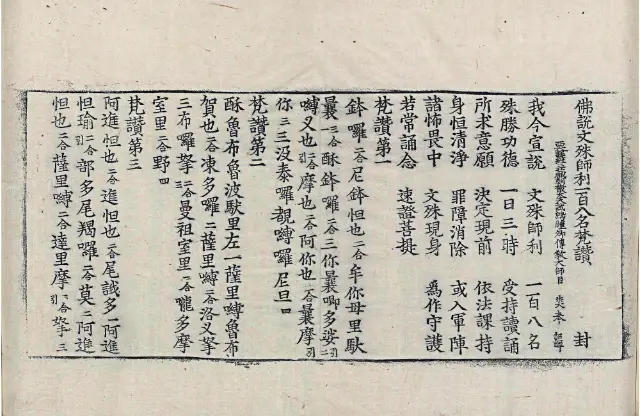 佛說文殊師利一百八名梵讚 封
我今宣說 文殊師利 一百八名
殊勝功德 一日三時 受持讀誦
所求意願 決定現前 依法課持
身恒清淨 罪障消除 或入軍陣
諸怖畏中 文殊現身 為作守護
若常誦念 速證菩提
梵讚第一
鉢囉二合尼鉢怛也二合牟你母里馱
曩三合酥鉢囉二合三你曩唧多娑引二
嚩又也引二合摩也二合阿你也二合曩摩引
你三三没泰囉覩嚩囉尼旦四
梵讚第二
酥魯布魯波馱里左一薩里嚩魯布
賀也二合凍多囉二薩里嚩二合洛叉拏
三布囉拏三合曼祖室里二合嚨多摩
室里二合野四
梵讚第三
阿進怛也二合進怛也二合尾誐多一阿進
怛瑜引二合部多尾羯囉二合莫二阿進
怛也二合薩里嚩二合達里摩引二合拏三